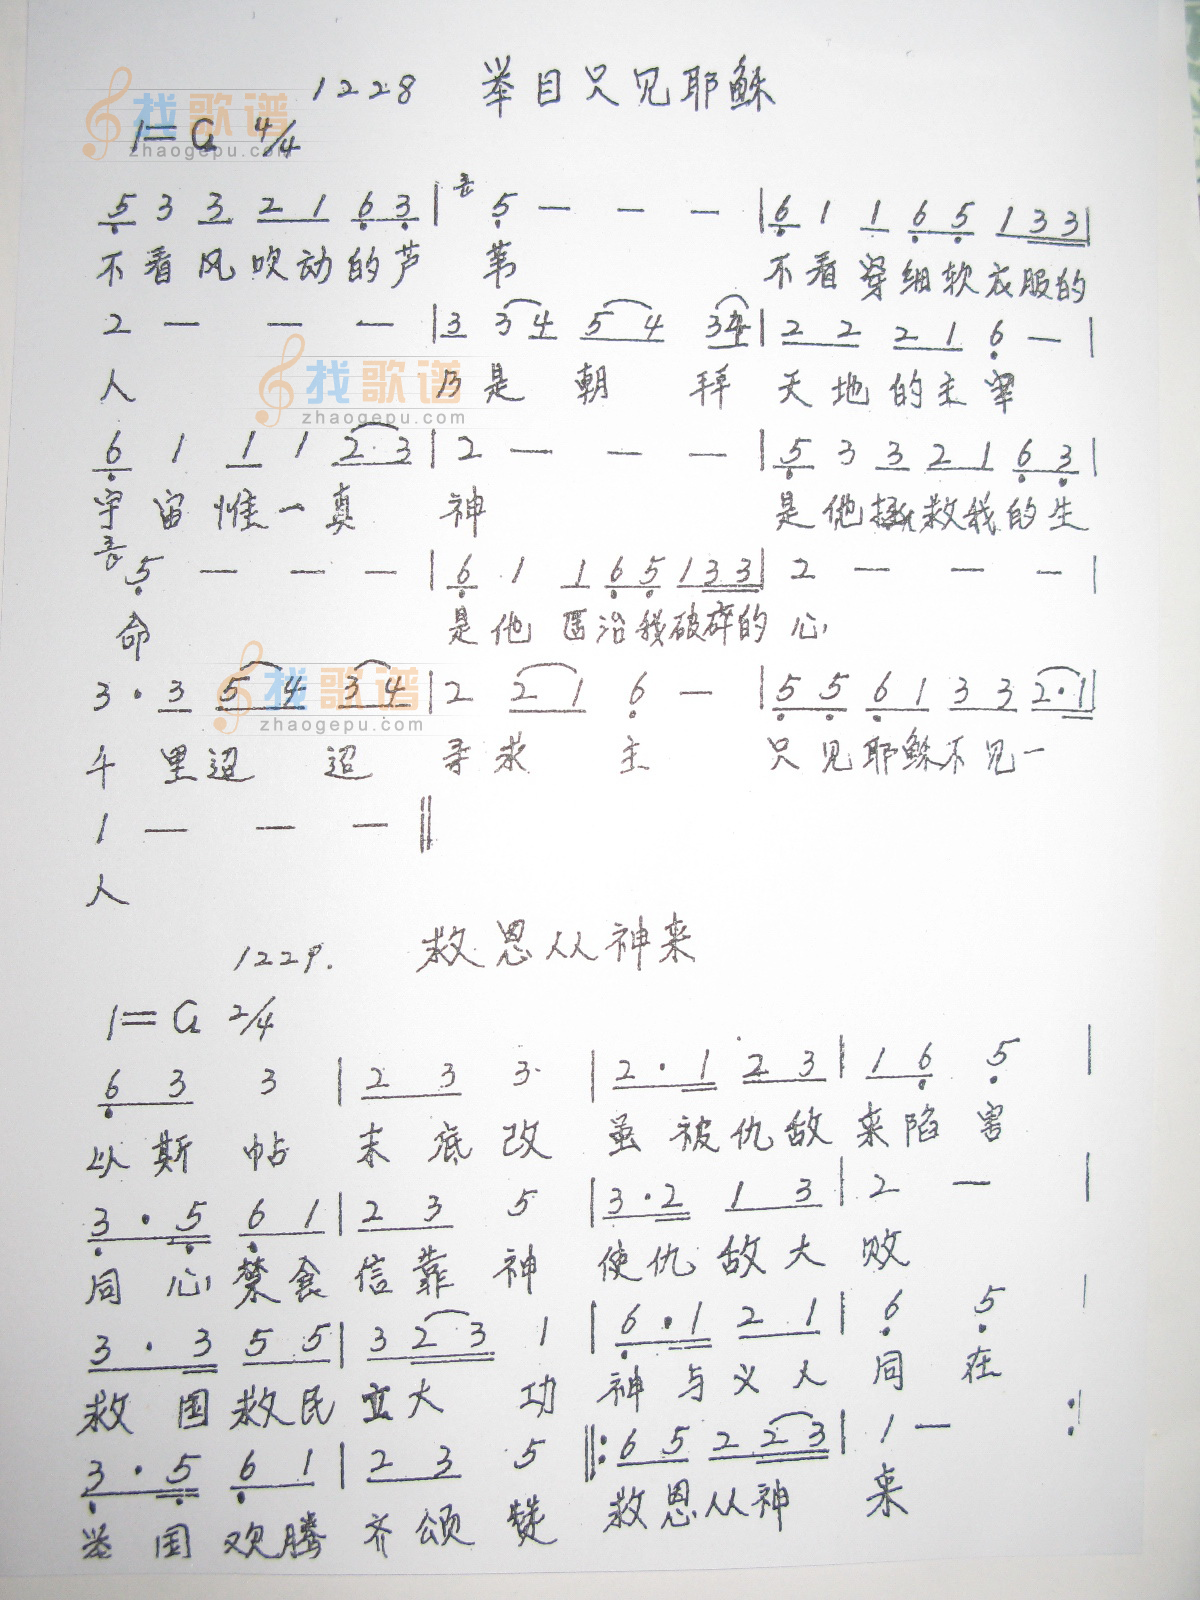 1228 举目只见耶稣
找歌谱
zhaogepu.com
1=G 4/4
5 3 3 2 1 6 3 | 5 — — — | 6 1 1 6 5 1 3 3 |
不看风吹动的芦 苇 不看穿细软衣服的
2 — — — | 3 3 4 5 4 3 4 | 2 2 2 1 6 — |
人 乃是朝拜 天地的主宰
找歌谱
zhaogepu.com
6 1 1 1 2·3 | 2 — — — | 5 3 3 2 1 6 3 |
宇宙惟一真 神 是他拯救我的生
5 — — — | 6 1 1 6 5 1 3 3 | 2 — — — |
命 是他医治我破碎的 心
找歌谱
zhaogepu.com
3·3 5 4 3 4 | 2 2 1 6 — | 5 5 6 1 3 3 2·1 |
千里迢迢 寻求主 只见耶稣不见一
1 — — — ‖
人
1229. 救恩从神来
1=G 2/4
6 3 3 | 2 3 3 | 2·1 2 3 | 1 6 5 |
以斯帖 末底改 虽被仇敌 来陷害
3·5 6 1 | 2 3 5 | 3·2 1 3 | 2 — |
同心禁食 信靠神 使仇敌大 败
3·3 5 5 | 3 2 3 1 | 6·1 2 1 | 6 5 |
救国救民 立大功 神与义人 同在
3·5 6 1 | 2 3 5 ‖: 6 5 2 2 3 | 1 — :
举国欢腾 齐颂赞 救恩从神 来